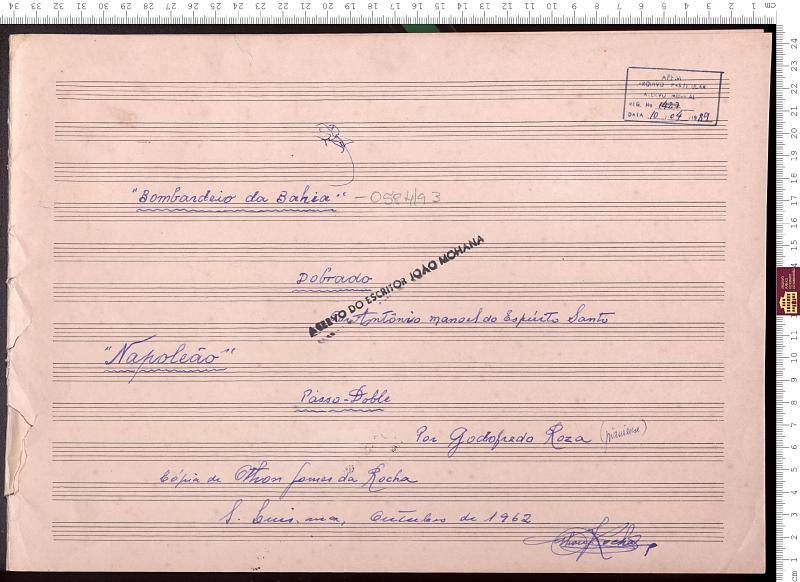 APEM
ARQUIVO PARTICULAR
ACERVO MUSICAL
REG. No 1422
DATA 10, 04, 1989
"Bombardeio da Bahia" - 0584/93
Dobrado
ACERVO DO ESCRITOR JOÃO MOHANA
Antônio manoel do Espírito Santo
"Napoleão"
Passo-Doble
Por Godofredo Roza (piauiense)
Cópia de Othon Gomes da Rocha
S. Luis. ma, Outubro de 1962
Rocha